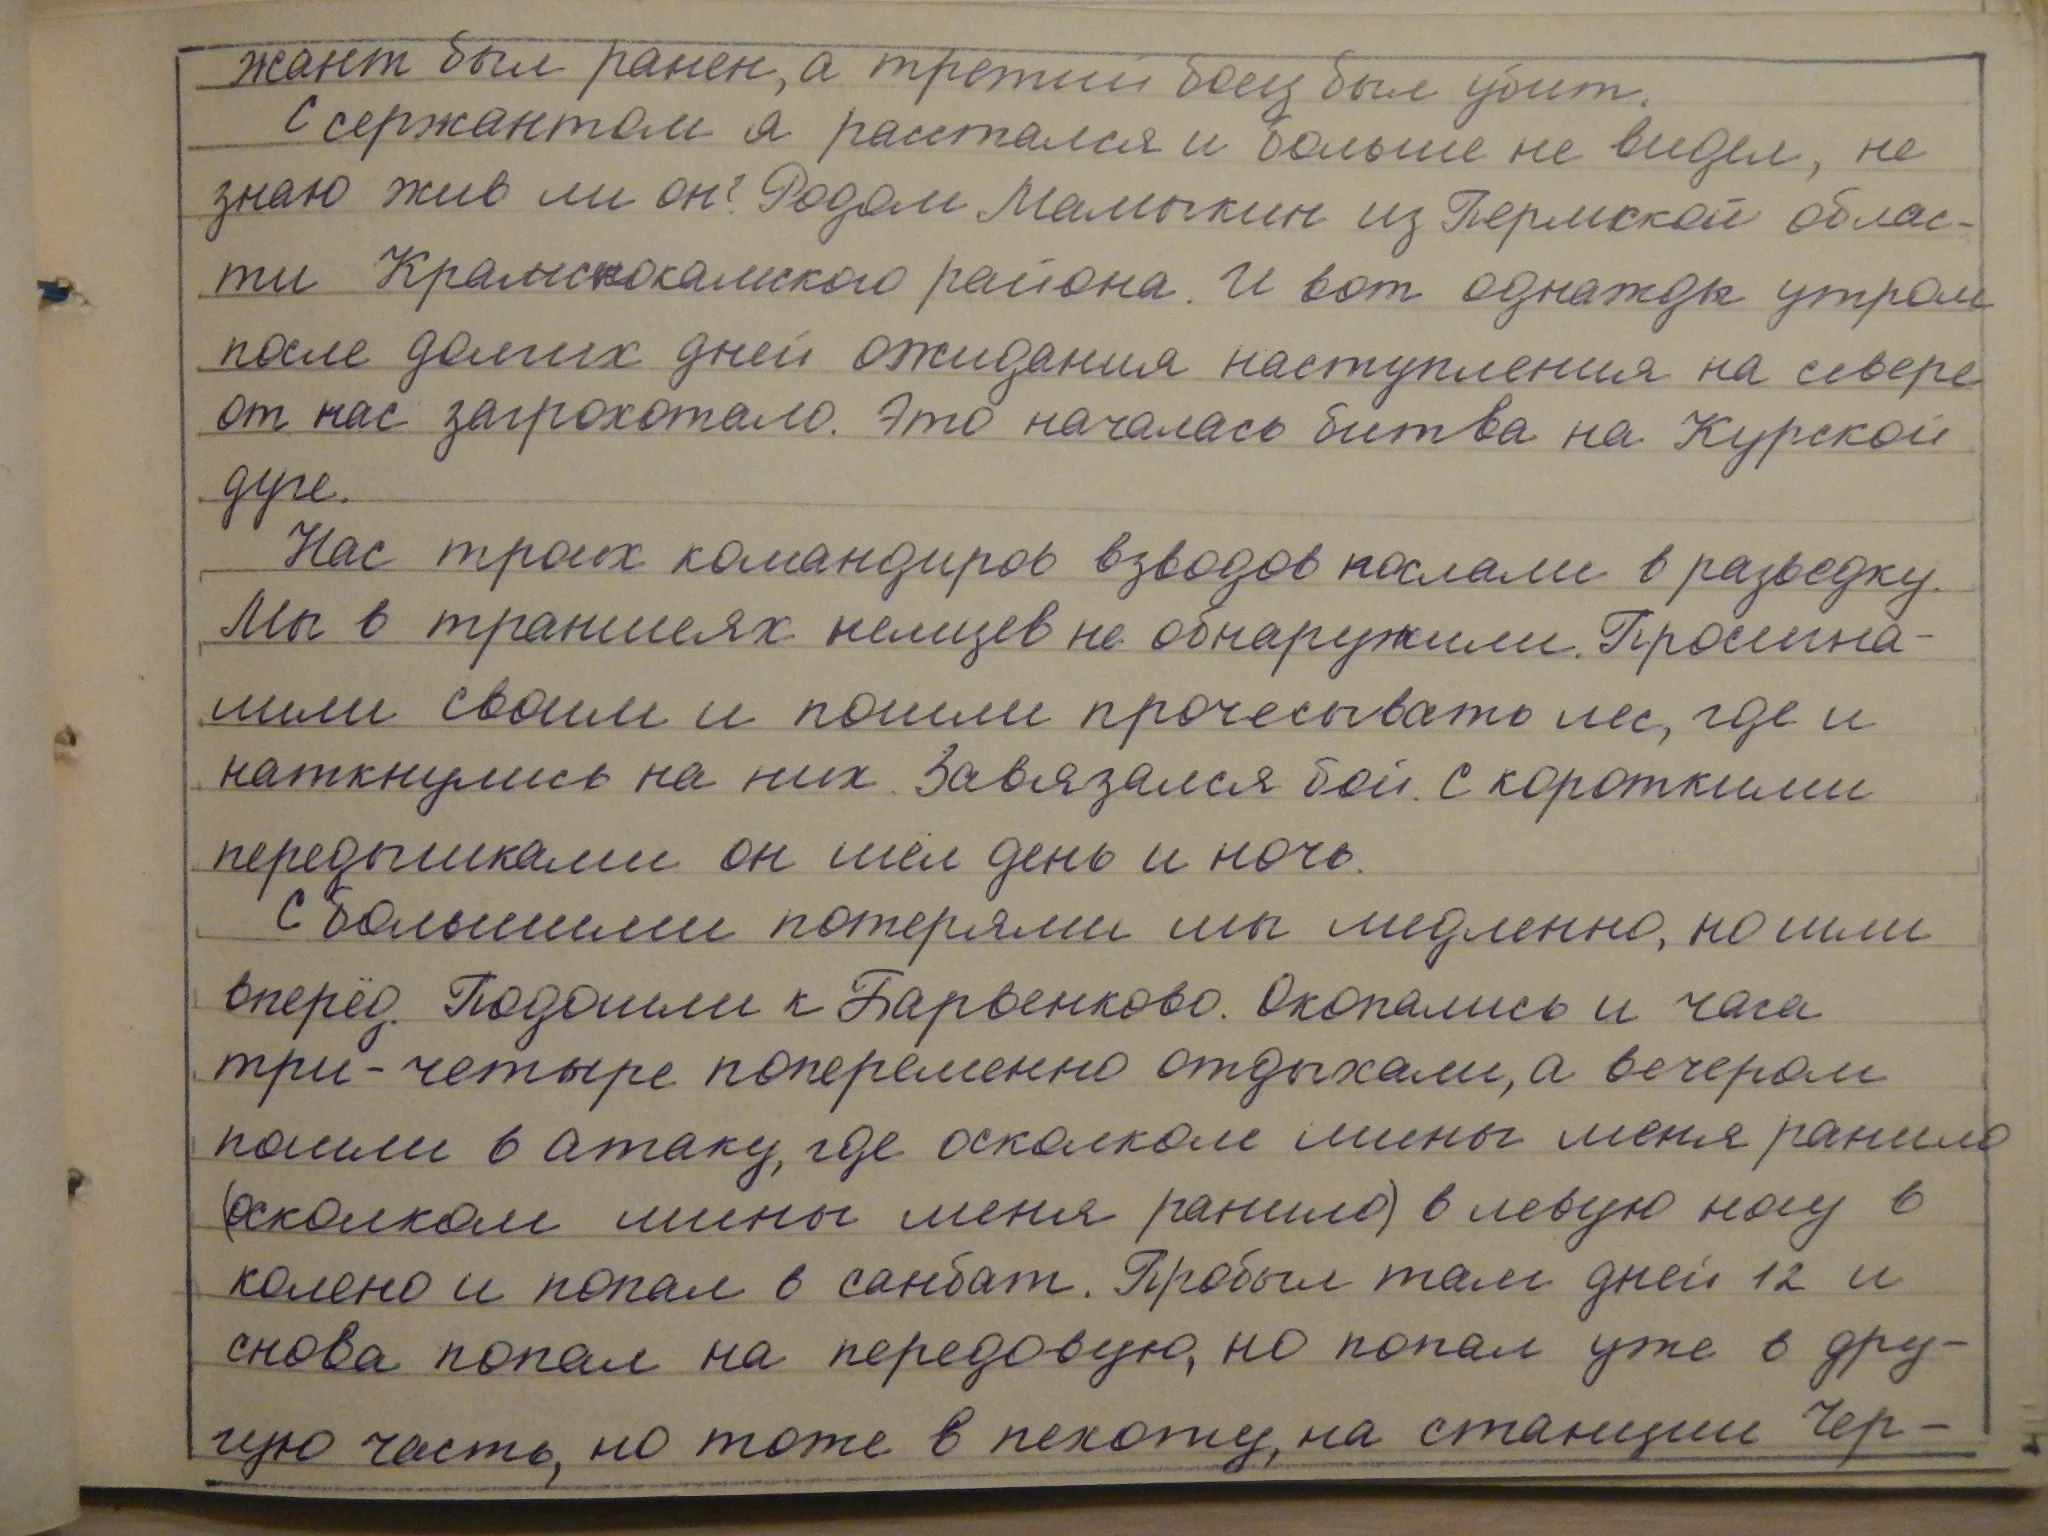 жант был ранен, а третий боец был убит.
С сержантом я расстался и больше не видел, не
знаю жив ли он? Родом Мамыкин из Пермской облас-
ти Крамснокамского района. И вот однажды утром
после долгих дней ожидания наступления на севере
от нас загрохотало. Это началась битва на Курской
дуге.
Нас троих командиров взводов послали в разведку.
Мы в траншеях немцев не обнаружили. Просигна-
лили своим и пошли прочесывать лес, где и
наткнулись на них. Завязался бой. С короткими
передышками он шёл день и ночь.
С большими потерями мы медленно, но шли
вперёд. Подошли к Барвенково. Окопались и часа
три-четыре попеременно отдыхали, а вечером
пошли в атаку, где осколком мины меня ранило
(осколком мины меня ранило) в левую ногу в
колено и попал в санбат. Пробыл там дней 12 и
снова попал на передовую, но попал уже в дру-
гую часть, но тоже в пехоту, на станции Чер-